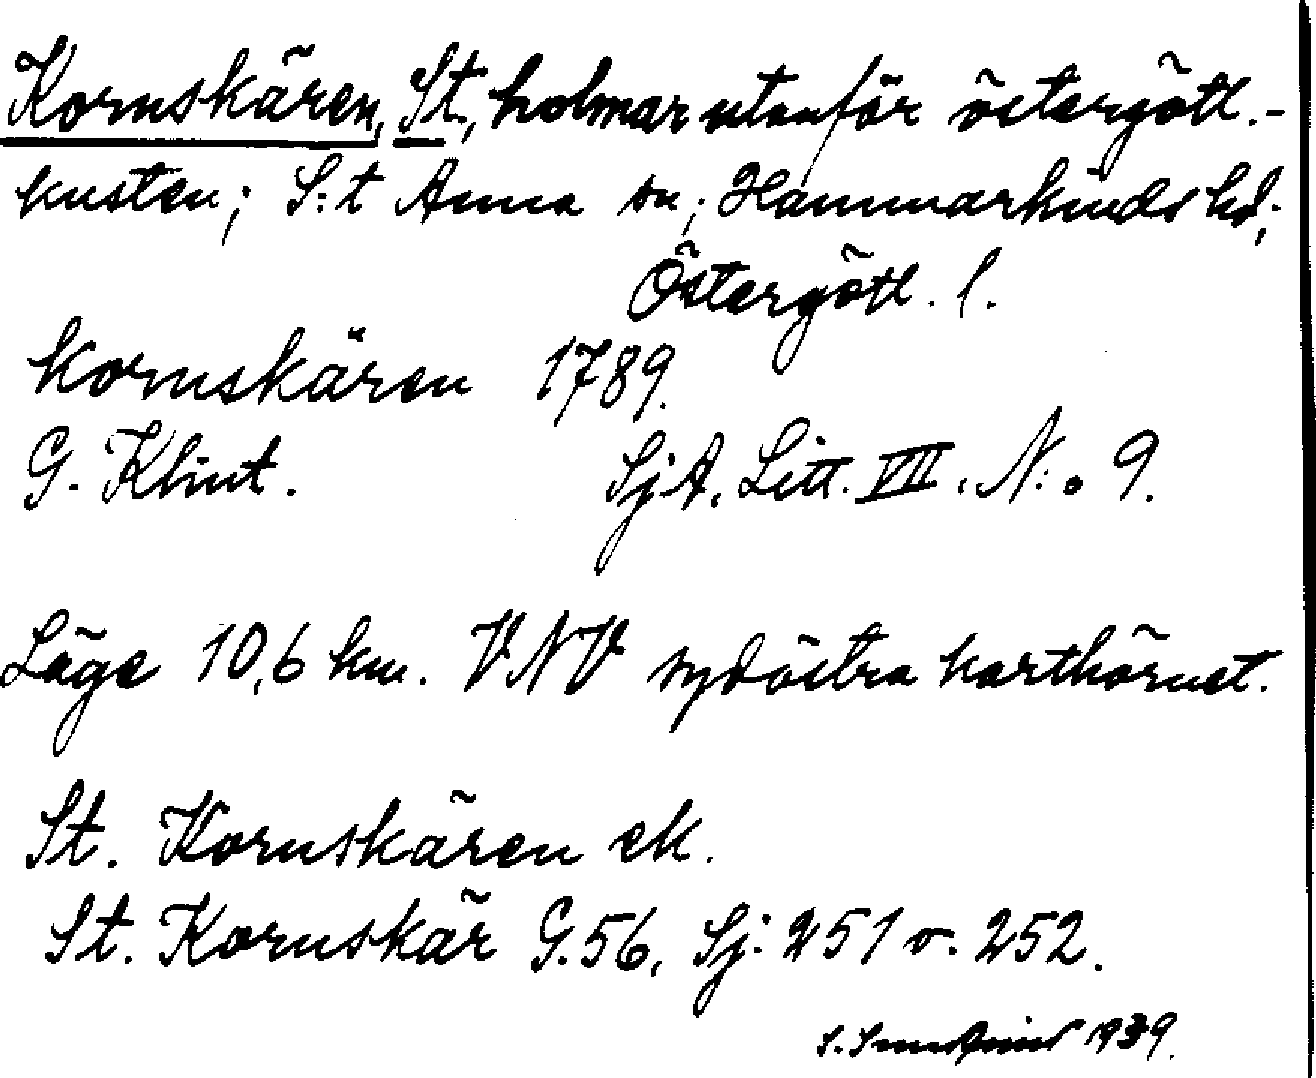 Kornskären, St., holmar utanför östergötl.-
kusten; S:t Anna sn; Hammarkinds hd;
Östergötl. l.
Kornskären 1789.
G. Klint. SjA. Litt. VII. N:o 9.
Läge 10,6 km. VNV sydöstra karthörnet.
St. Kornskären ek.
St. Kornskär G.56, Sj: 251 o. 252.
S. 1939.